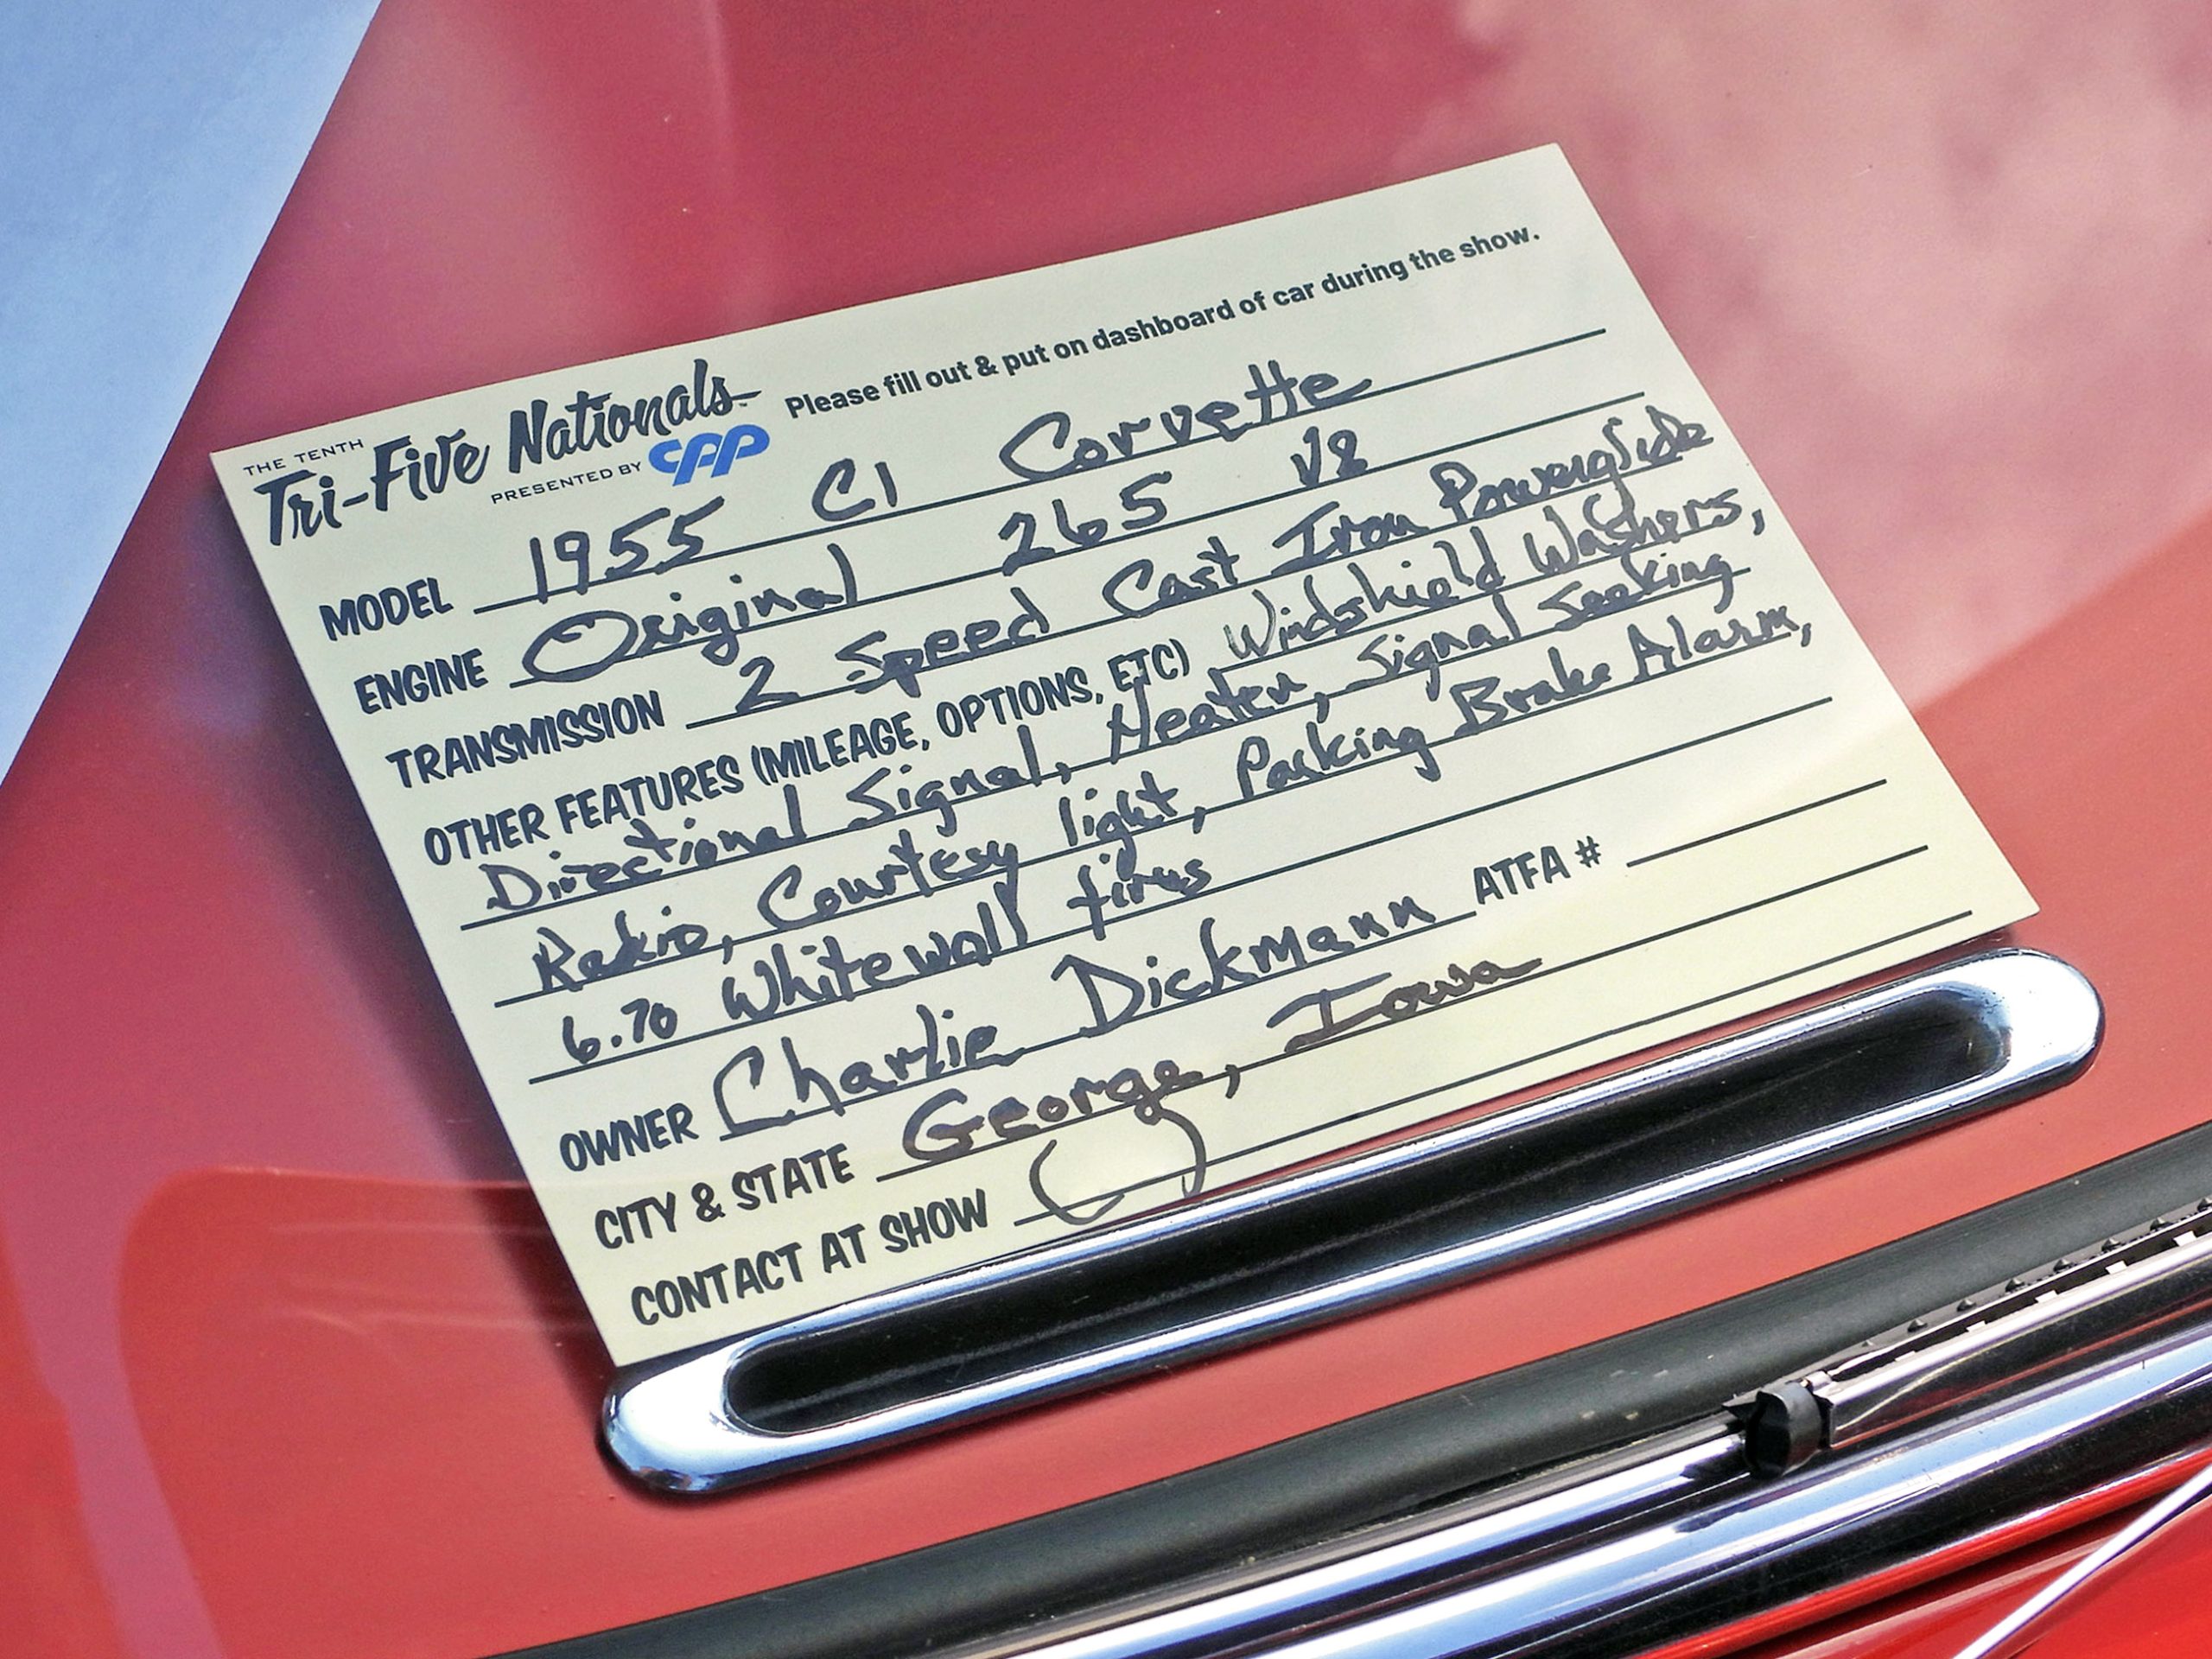 THE TENTH
Tri-Five Nationals™
PRESENTED BY CPP
Please fill out & put on dashboard of car during the show.
MODEL 1955 C1 Corvette
ENGINE Original 265 V8
TRANSMISSION 2 Speed Cast Iron Powerglide
OTHER FEATURES (MILEAGE, OPTIONS, ETC) Windshield Washers,
Directional Signal, Heater, Signal Seeking
Radio, Courtesy light, Parking Brake Alarm,
6.70 Whitewall tires
OWNER Charlie Dickmann ATFA #
CITY & STATE George, Iowa
CONTACT AT SHOW